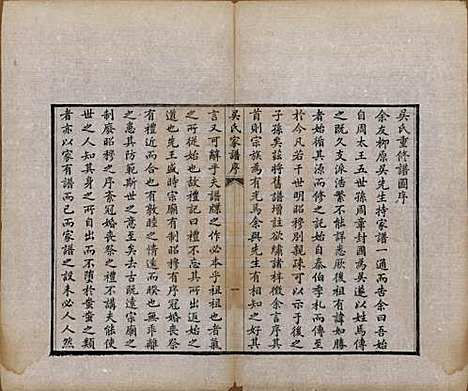 吳氏重修譜圖序
余友柳原吳先生持家譜一通而告余曰吾
自周太王五世孫周章封國為吳遂以姓焉傳
之既久支派活繁不能詳悉厥後祖有諱如勝
者始尋其源而修之於是起自泰伯季札而傳至
於今凡若干世明利親疎可以示於後之
子孫矣茲將舊譜增註欲繡諸梓徵余言序其
首則宗族為有光焉余與先生有知心之好其
吳氏家譜序 一
言又可辭乎夫譜牒之作必本乎祖祖也者氣
之所從始也禮也者不忘其所由出而追始之
道也先王盛時宗廟有制昭穆有序冠婚喪祭
有禮近而合也有敦睦之情而久也無乖離
之患其防範斯世之意為何如去古既遠宗廟之
制廢昭穆之序紊冠婚喪祭之禮不講夫能使
世之人知其身之所自出而不墮於蚩蚩之類
者亦以家有譜而已而家譜之設未必人人然